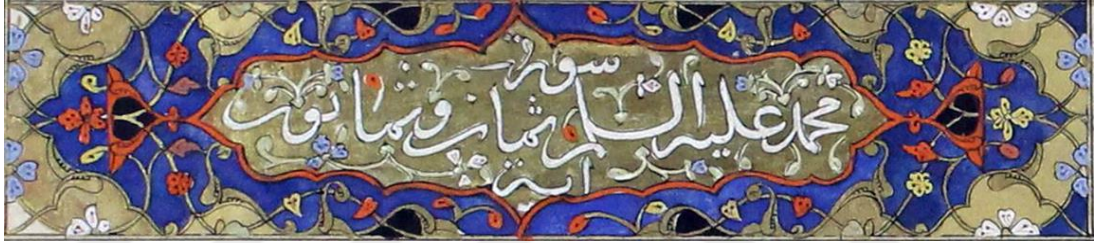 سورة
محمد عليه السلم ثمان وثمانون
اية